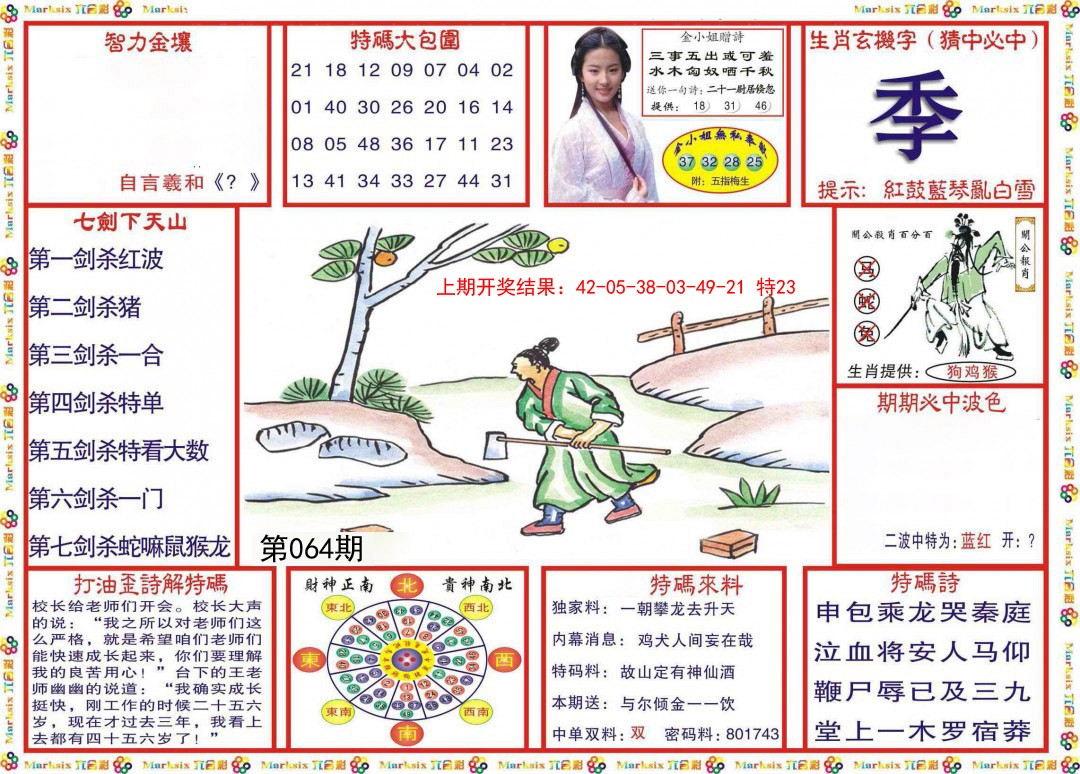 智力金壤
自言羲和《? 》
特碼大包圍
21 18 12 09 07 04 02
01 40 30 26 20 16 14
08 05 48 36 17 11 23
13 41 34 33 27 44 31
金小姐贈詩
三事五出或可羞
水木匈奴哂千秋
送你一句詩：二十一尉居倏忽
提供： 18 31 46
金小姐無私奉
37 32 28 25
附：五指梅生
生肖玄機字（猜中必中）
季
提示: 紅鼓藍琴亂白雪
七劍下天山
第一剑杀红波
第二剑杀猪
第三剑杀一合
第四剑杀特单
第五剑杀特看大数
第六剑杀一门
第七剑杀蛇嘛鼠猴龙
上期开奖结果: 42-05-38-03-49-21 特23
第064期
關公殺肖百分百
關公報肖
马
蛇
兔
生肖提供:
狗鸡猴
期期必中波色
二波中特为: 蓝红 开: ?
打油歪詩解特碼
校长给老师们开会。校长大声
的说：“我之所以对老师们这
么严格，就是希望咱们老师们
能快速成长起来，你们要理解
我的良苦用心！”台下的王老
师幽幽的说道：“我确实成长
挺快，刚工作的时候二十五六
岁，现在才过去三年，我看上
去都有四十五六岁了！”
財神正南
北
貴神南北
東北
西北
東
酉
東南
西南
南
特碼來料
独家料: 一朝攀龙去升天
内幕消息: 鸡犬人间妄在哉
特码料: 故山定有神仙酒
本期送: 与尔倾金一一饮
中单双料: 双 密码料: 801743
特碼詩
申包乘龙哭秦庭
泣血将安人马仰
鞭尸辱已及三九
堂上一木罗宿莽